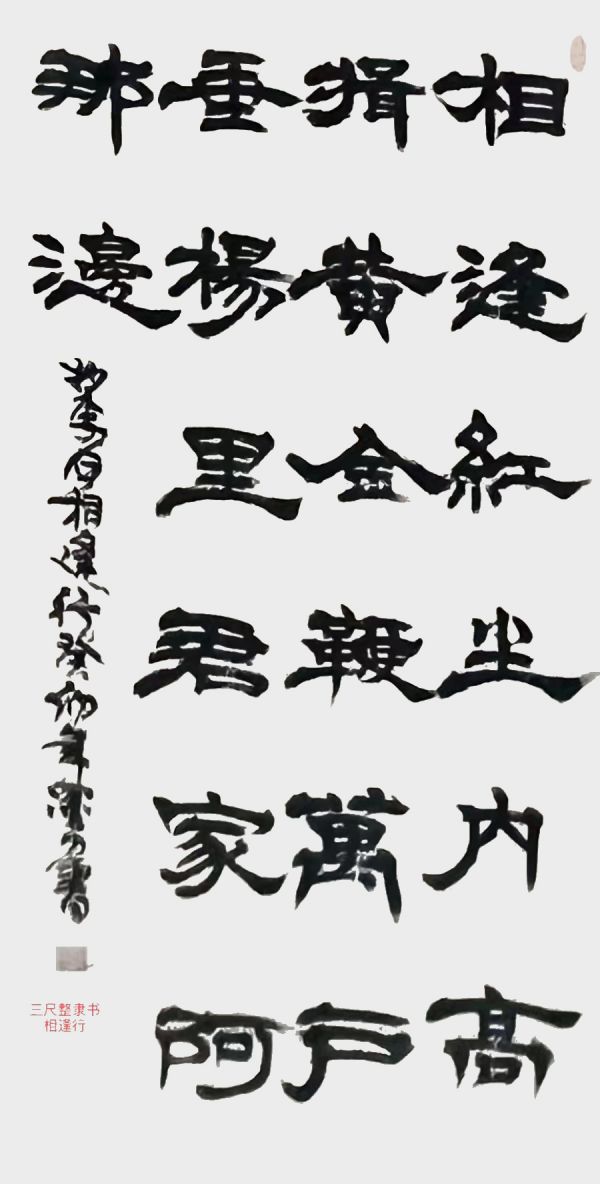 相逢紅尘内高
揖黄金鞭萬户
垂楊里君家阿
那邊
李白相逢行癸卯年書
三尺整隶书
相逢行